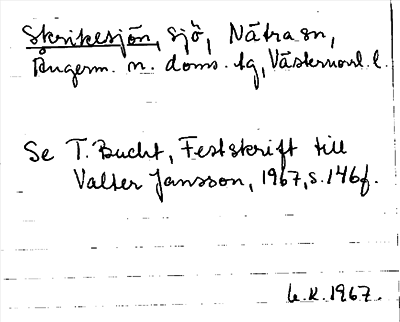 Skrikesjön, sjö, Nätra sn,
Ångerm. n. doms. tg, Västernorrl. l.
Se T. Bucht, Festskrift till
Valter Jansson, 1967, s. 146f.
L.K. 1967.